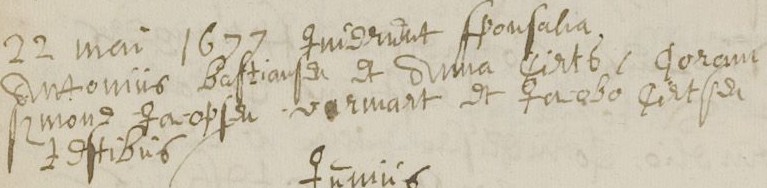 22 mai 1677 Inierunt sponsalia
Antonius bastiansen et Anna Girts / Coram
symone Jacopsen vermart et Jacobo Girtsen
testibus
Junius